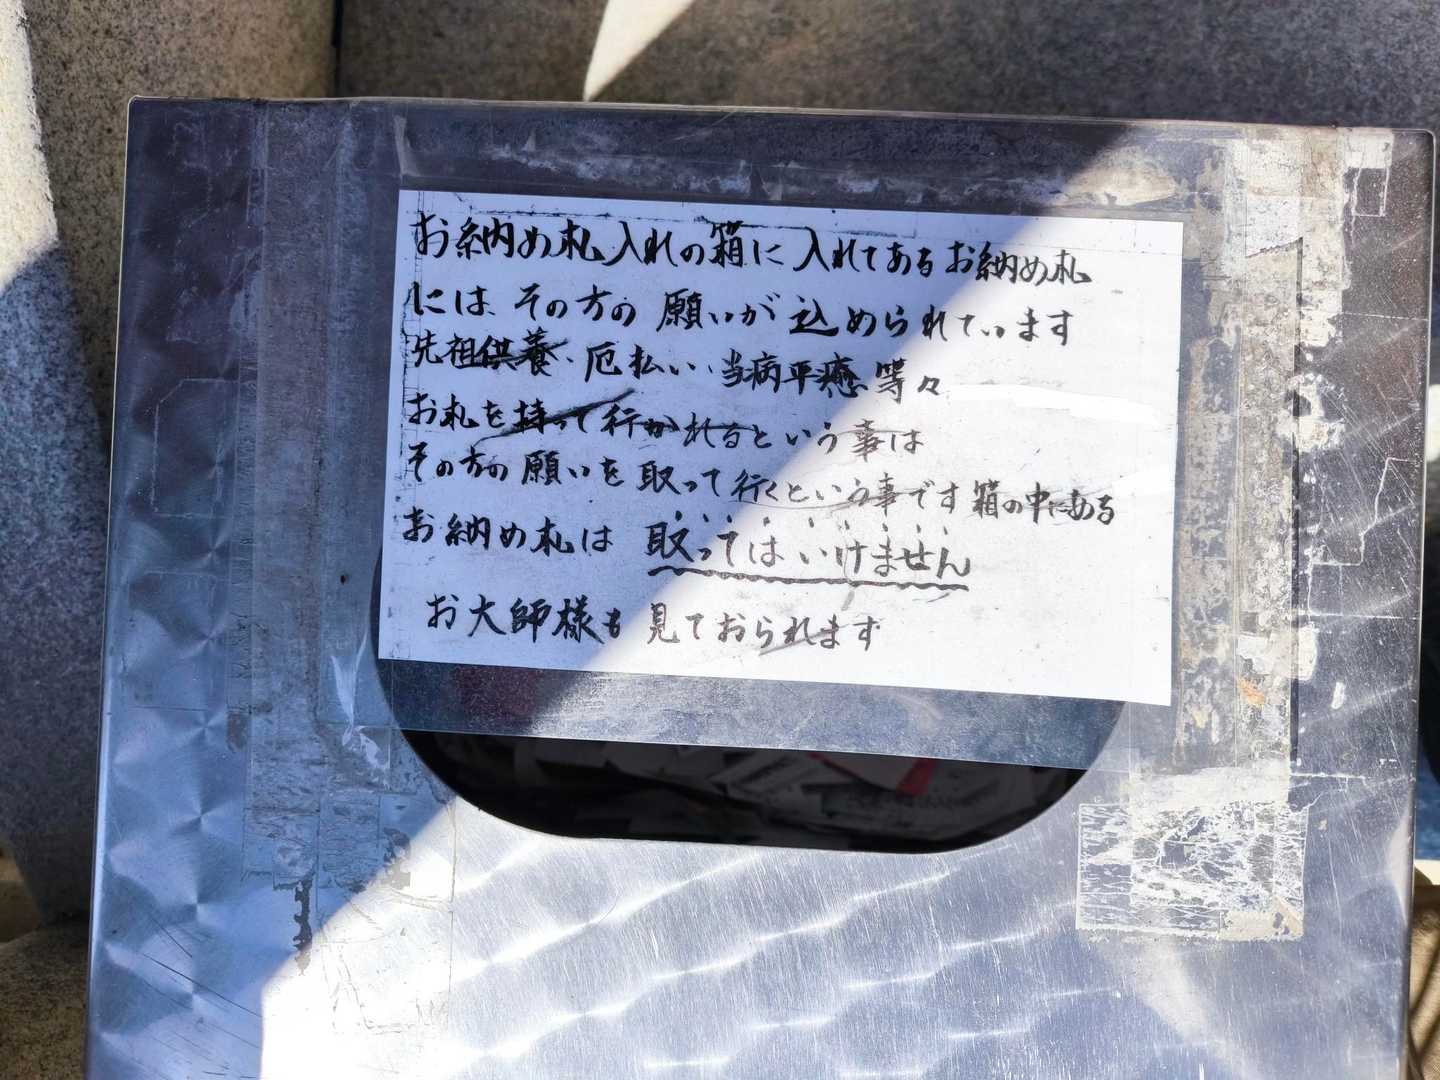 お納め札入れの箱に入れてあるお納め札
には その方の願いが込められています
先祖供養、厄払い、当病平癒等々
お札を持って行かれるという事は
その方の願いを取って行くという事です 箱の中にある
お納め札は 取ってはいけません
お大師様も見ておられます